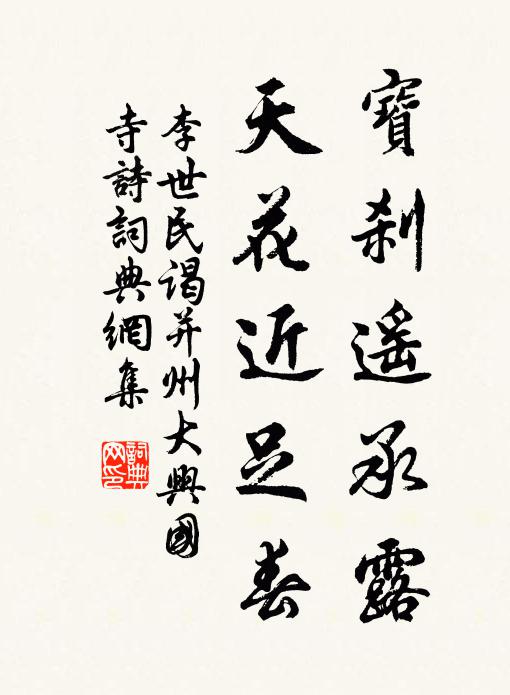 寶刹遥承露
天花近足春
李世民谒并州大興國
寺詩詞典網集
詞典
网印